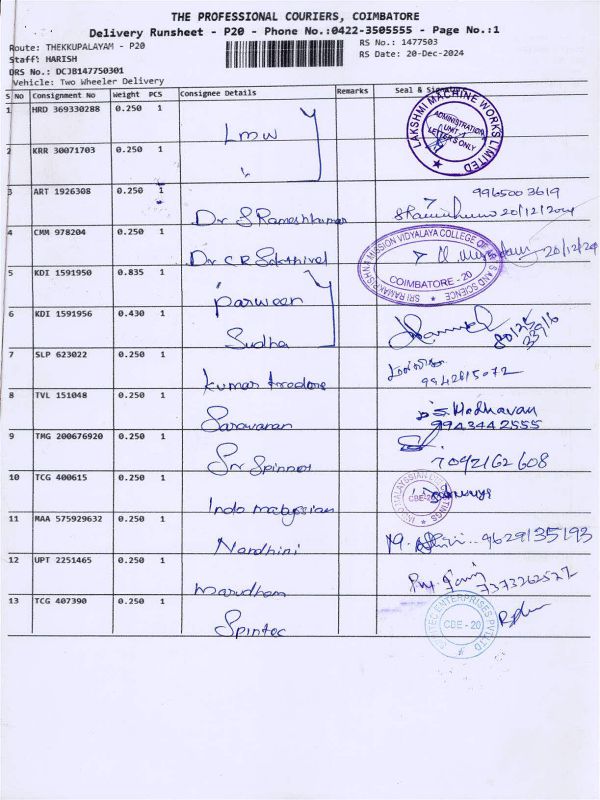 THE PROFESSIONAL COURIERS, COIMBATORE
Delivery Runsheet - P20 - Phone No.:0422-3505555 - Page No.:1
Route: THEKKUPALAYAM - P20
RS No.: 1477503
Staff: HARISH
RS Date: 20-Dec-2024
DRS No.: DCJB147750301
Vehicle: Two Wheeler Delivery
S No Consignment No Weight PCS Consignee Details Remarks Seal & Signature
1 HRD 369330288 0.250 1 Lmw
LAKSHMI MACHINE WORKS LIMITED ADMINISTRATION UNIT-1 LETTERS ONLY
2 KRR 30071703 0.250 1
3 ART 1926308 0.250 1 Dr S Rameshkumar 9965003619
20/12/2024
4 CMM 978204 0.250 1 Dr C R Sakthivel 20/12/20
SRI RAMAKRISHNA MISSION VIDYALAYA COLLEGE OF ARTS AND SCIENCE COIMBATORE - 20
5 KDI 1591950 0.835 1 Parween
6 KDI 1591956 0.430 1 Sudha
7 SLP 623022 0.250 1 Kumar 9942815072
8 TVL 151048 0.250 1 Saravanan S. Madhavan
9943442555
9 TMG 200676920 0.250 1 Sri Spinner 7092162608
10 TCG 400615 0.250 1 Indo malaysian
CBE-20
11 MAA 575929632 0.250 1 Nandhini 9629135193
12 UPT 2251465 0.250 1 Marudham 7373262577
13 TCG 407390 0.250 1 Spintec
SPINTEC ENTERPRISES PVT LTD CBE - 20